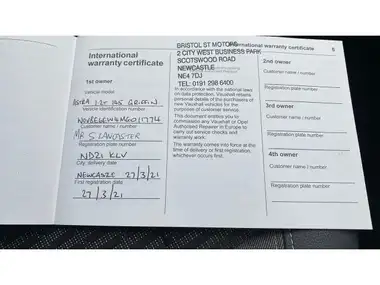 International
warranty certificate
1st owner
Vehicle model
ASTRA 1.2T 145 GRIFFIN
Vehicle identification number
Customer name / number
MR S. LANCASTER
Registration plate number
ND21 KLV
City, delivery date
NEWCASTLE 27/3/21
First registration date
27/3/21
BRISTOL ST MOTORS
2 CITY WEST BUSINESS PARK
SCOTSWOOD ROAD
NEWCASTLE
NE4 7DJ
TEL: 0191 298 6400
In accordance with the national laws
on data protection, Vauxhall retains
personal details of the purchasers of
new Vauxhall vehicles for the
purposes of customer service.
This document entitles you to
commission any Vauxhall or Opel
Authorised Repairer in Europe to
carry out service checks and
warranty work.
The warranty comes into force at the
time of delivery or first registration,
whichever occurs first.
International warranty certificate
2nd owner
Customer name / number
Registration plate number
3rd owner
Customer name / number
Registration plate number
4th owner
Customer name / number
Registration plate number